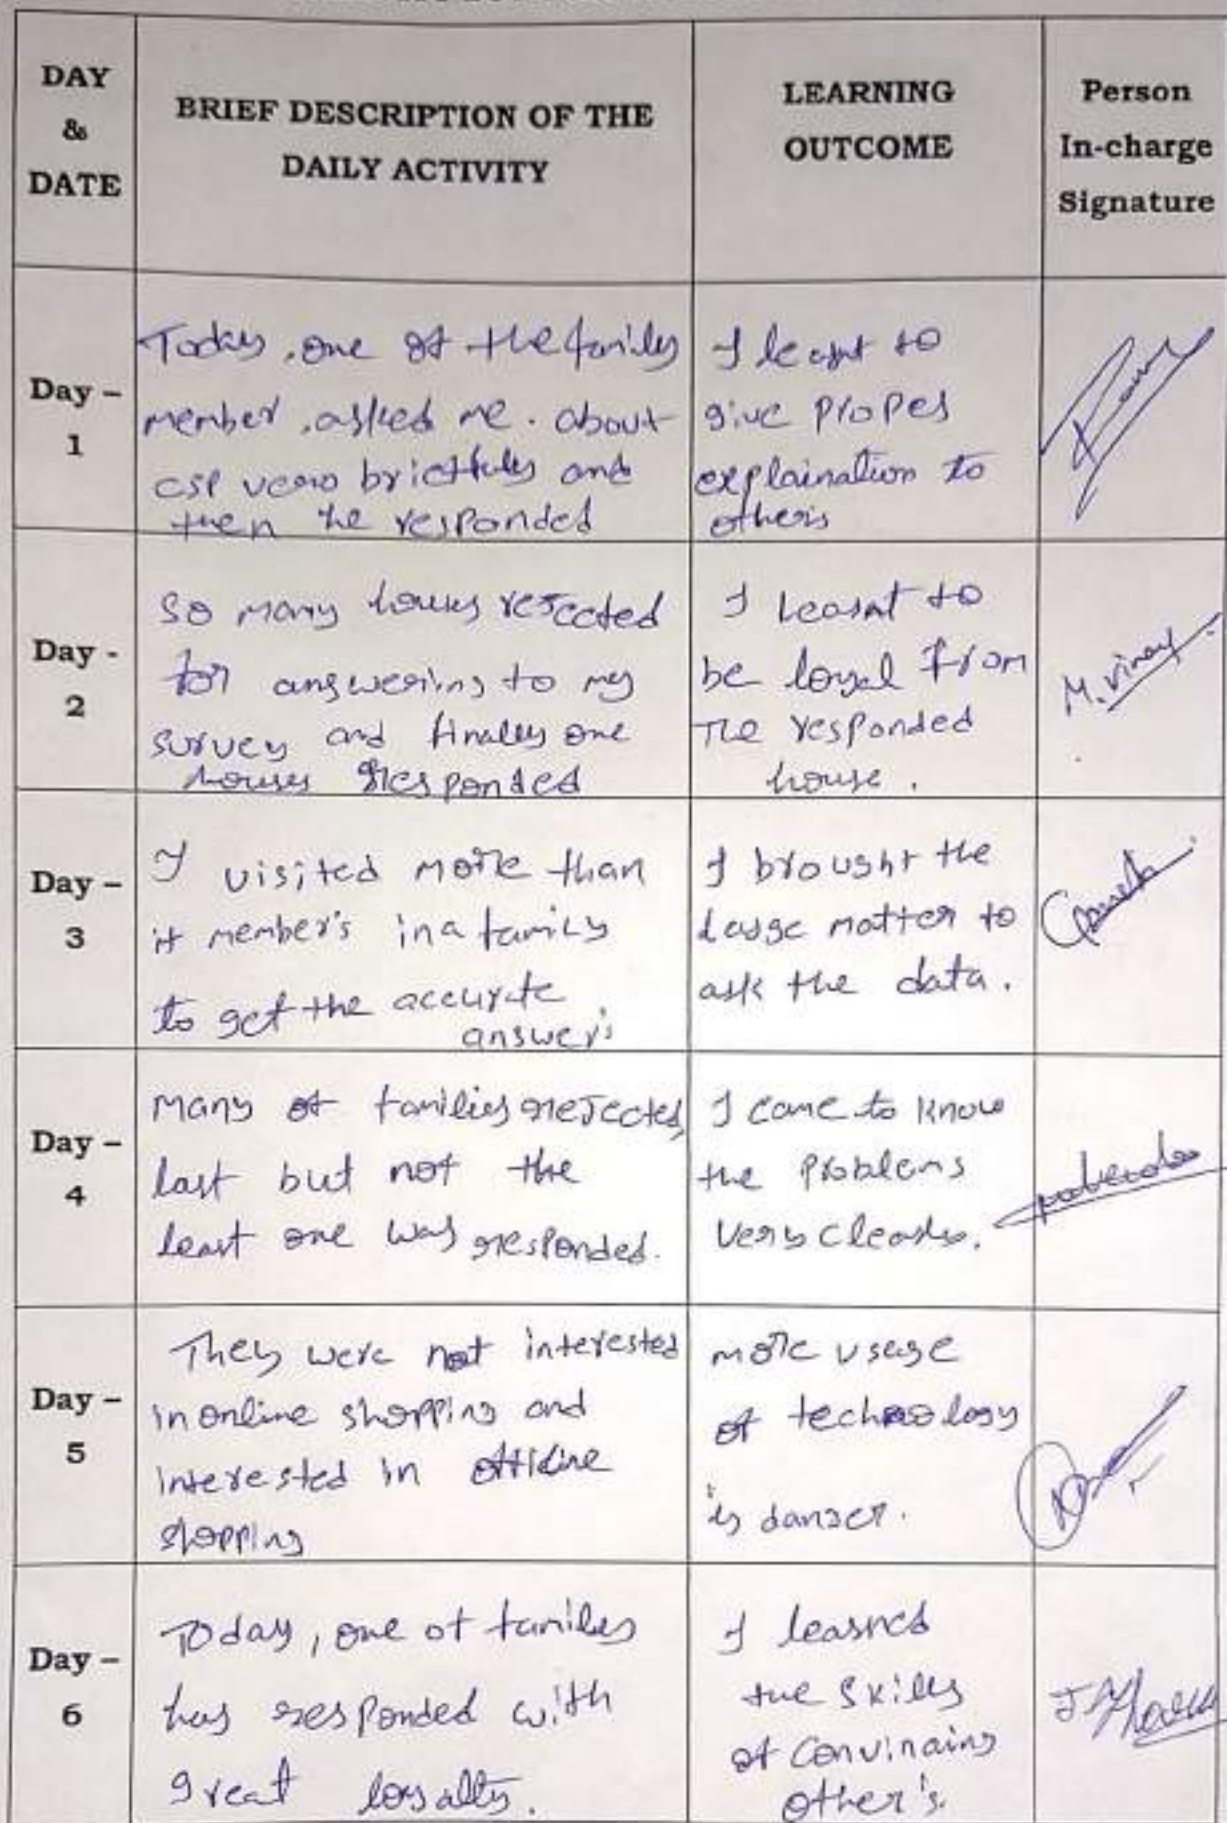 DAY
&
DATE
BRIEF DESCRIPTION OF THE
DAILY ACTIVITY
LEARNING
OUTCOME
Person
In-charge
Signature
Day –
1
Today, one of the family
member, asked me. about
CSP very brieffuly and
then he responded
I learnt to
give proper
explaination to
others
Day -
2
So many houses rejected
for answering to my
survey and finally one
houses responded
I learnt to
be loyal from
The responded
house.
M. Vinay
Day –
3
I visited more than
it member's in a family
to get the accurate
answer's
I brought the
large matter to
ask the data.
Day –
4
Many of families rejected,
last but not the
least one was responded.
I came to know
the problems
very clearly.
Day –
5
They were not interested
in online shopping and
interested in offline
shopping
more usage
of technology
is danger.
Day –
6
Today, one of families
has responded with
great loyalty.
I learned
the skills
of convinaing
other's.